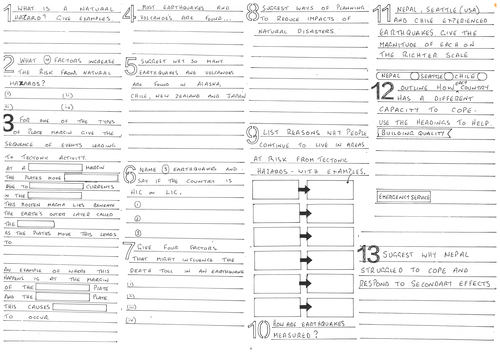 1 WHAT IS A NATURAL
HAZARD? GIVE EXAMPLES.
2 WHAT FACTORS INCREASE
THE RISK FROM NATURAL
HAZARDS?
(i) (ii)
(iii) (iv)
3 FOR ONE OF THE TYPES
OF PLATE MARGIN GIVE THE
SEQUENCE OF EVENTS LEADING
TO TECTONIC ACTIVITY.
AT A MARGIN
THE PLATES MOVE
DUE TO CURRENTS
IN THE
THIS MOLTEN MAGMA LIES BENEATH
THE EARTH'S OUTER LAYER CALLED
THE
AS THE PLATES MOVE THIS LEADS
TO
AN EXAMPLE OF WHERE THIS
HAPPENS IS AT THE MARGIN
OF THE PLATE
AND THE PLATE
THIS CAUSES
TO OCCUR
4 MOST EARTHQUAKES AND
VOLCANOES ARE FOUND...
5 SUGGEST WHY SO MANY
EARTHQUAKES AND VOLCANOES
ARE FOUND IN ALASKA,
CHILE, NEW ZEALAND AND JAPAN
6 NAME 3 EARTHQUAKES AND
SAY IF THE COUNTRY IS
HIC OR LIC.
1
2
3
7 GIVE FOUR FACTORS
THAT MIGHT INFLUENCE THE
DEATH TOLL IN AN EARTHQUAKE
(i)
(ii)
(iii)
(iv)
8 SUGGEST WAYS OF PLANNING
TO REDUCE IMPACTS OF
NATURAL DISASTERS
9 LIST REASONS WHY PEOPLE
CONTINUE TO LIVE IN AREAS
AT RISK FROM TECTONIC
HAZARDS - WITH EXAMPLES.
10 HOW ARE EARTHQUAKES
MEASURED?
11 NEPAL, SEATTLE (USA)
AND CHILE EXPERIENCED
EARTHQUAKES. GIVE THE
MAGNITUDE OF EACH ON
THE RICHTER SCALE
NEPAL SEATTLE CHILE
12 OUTLINE HOW EACH COUNTRY
HAS A DIFFERENT
CAPACITY TO COPE.
USE THE HEADINGS TO HELP.
BUILDING QUALITY
EMERGENCY SERVICE
13 SUGGEST WHY NEPAL
STRUGGLED TO COPE AND
RESPOND TO SECONDARY EFFECTS